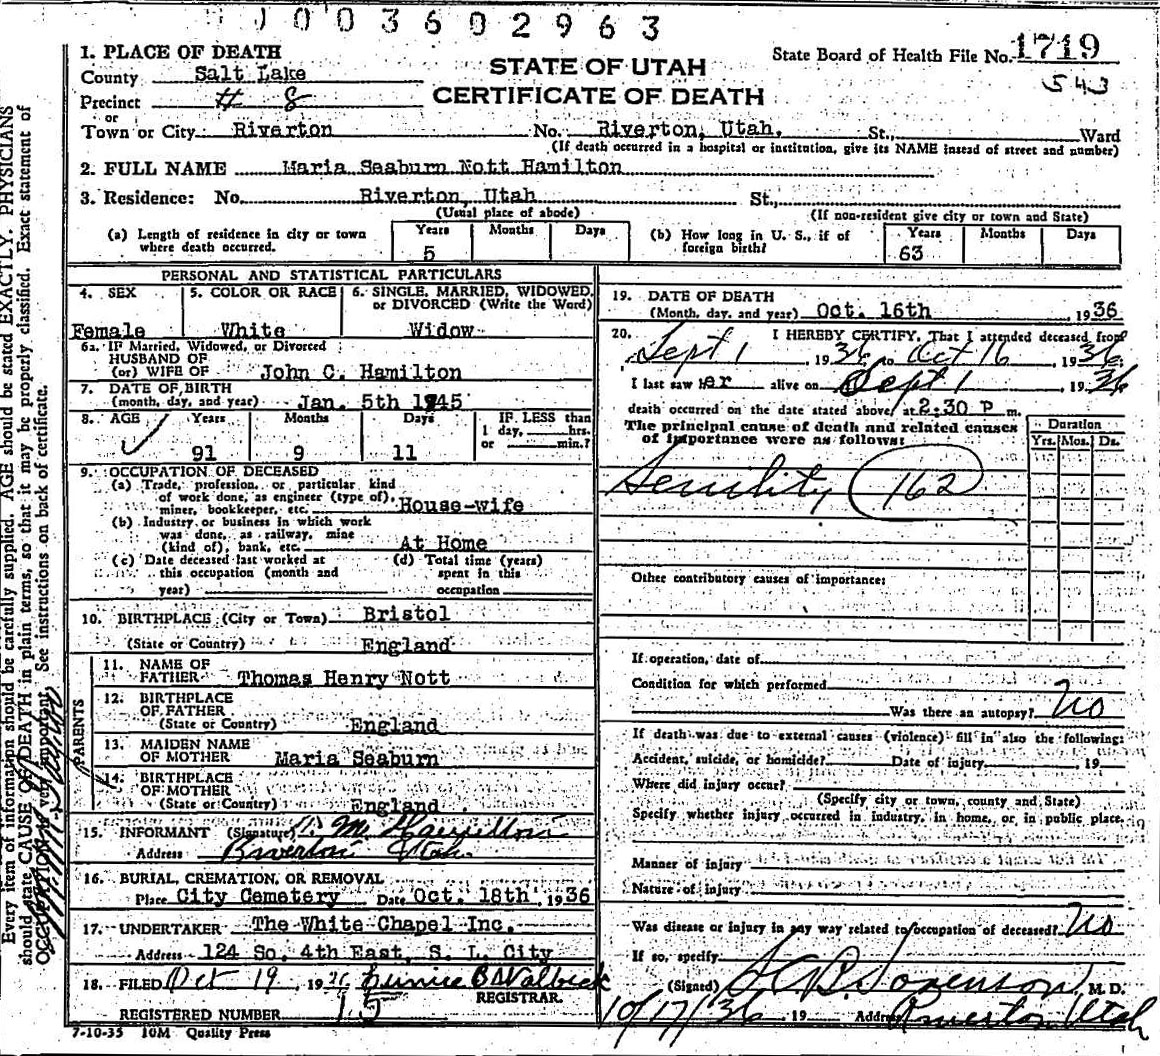 J003602963
1. PLACE OF DEATH
County Salt Lake
Precinct # 8
or
Town or City Riverton No. Riverton, Utah. St., Ward
(If death occurred in a hospital or institution, give its NAME instead of street and number)
STATE OF UTAH
CERTIFICATE OF DEATH
State Board of Health File No. 1719
543
2. FULL NAME Maria Seaburn Nott Hamilton
3. Residence: No. Riverton, Utah St.,
(Usual place of abode) (If non-resident give city or town and State)
(a) Length of residence in city or town where death occurred. Years 5 Months Days
(b) How long in U. S., if of foreign birth? Years 63 Months Days
PERSONAL AND STATISTICAL PARTICULARS
4. SEX Female
5. COLOR OR RACE White
6. SINGLE, MARRIED, WIDOWED, or DIVORCED (Write the Word) Widow
6a. IF Married, Widowed, or Divorced
HUSBAND OF
(or) WIFE OF John C. Hamilton
7. DATE OF BIRTH
(month, day, and year) Jan. 5th 1845
8. AGE Years 91 Months 9 Days 11 IF LESS than 1 day, hrs. or min.?
9. OCCUPATION OF DECEASED
(a) Trade, profession, or particular kind
of work done, as engineer (type of),
miner, bookkeeper, etc. House-wife
(b) Industry or business in which work
was done, as railway, mine
(kind of), bank, etc. At Home
(c) Date deceased last worked at
this occupation (month and
year)
(d) Total time (years)
spent in this
occupation
10. BIRTHPLACE (City or Town) Bristol
(State or Country) England
PARENTS
11. NAME OF
FATHER Thomas Henry Nott
12. BIRTHPLACE
OF FATHER
(State or Country) England
13. MAIDEN NAME
OF MOTHER Maria Seaburn
14. BIRTHPLACE
OF MOTHER
(State or Country) England
15. INFORMANT (Signature) M. Hamilton
Address Riverton Utah.
16. BURIAL, CREMATION, OR REMOVAL
Place City Cemetery Date Oct. 18th, 1936
17. UNDERTAKER The White Chapel Inc.
Address 124 So. 4th East, S. L. City
18. FILED Oct 19, 1936 Eunice B
REGISTRAR.
REGISTERED NUMBER 15
7-10-35 10M Quality Press
19. DATE OF DEATH
(Month, day, and year) Oct. 16th, 1936
20. I HEREBY CERTIFY, That I attended deceased from
Sept 1 1936 to Oct 16, 1936
I last saw her alive on Sept 1, 1936
death occurred on the date stated above, at 2:30 P m.
The principal cause of death and related causes
of importance were as follows:
Duration
Yrs. Mos. Ds.
Senility 162
Other contributory causes of importance:
If operation, date of
Condition for which performed
Was there an autopsy? No
If death was due to external causes (violence) fill in also the following:
Accident, suicide, or homicide? Date of injury, 19
Where did injury occur?
(Specify city or town, county and State)
Specify whether injury occurred in industry, in home, or in public place,
Manner of injury
Nature of injury
Was disease or injury in any way related to occupation of deceased? No
If so, specify
(Signed) Sorenson, M. D.
10/17/36 19 Address Riverton, Utah
Every item of information should be carefully supplied. AGE should be stated EXACTLY. PHYSICIANS
should state CAUSE OF DEATH in plain terms, so that it may be properly classified. Exact statement of
OCCUPATION is very important. See instructions on back of certificate.